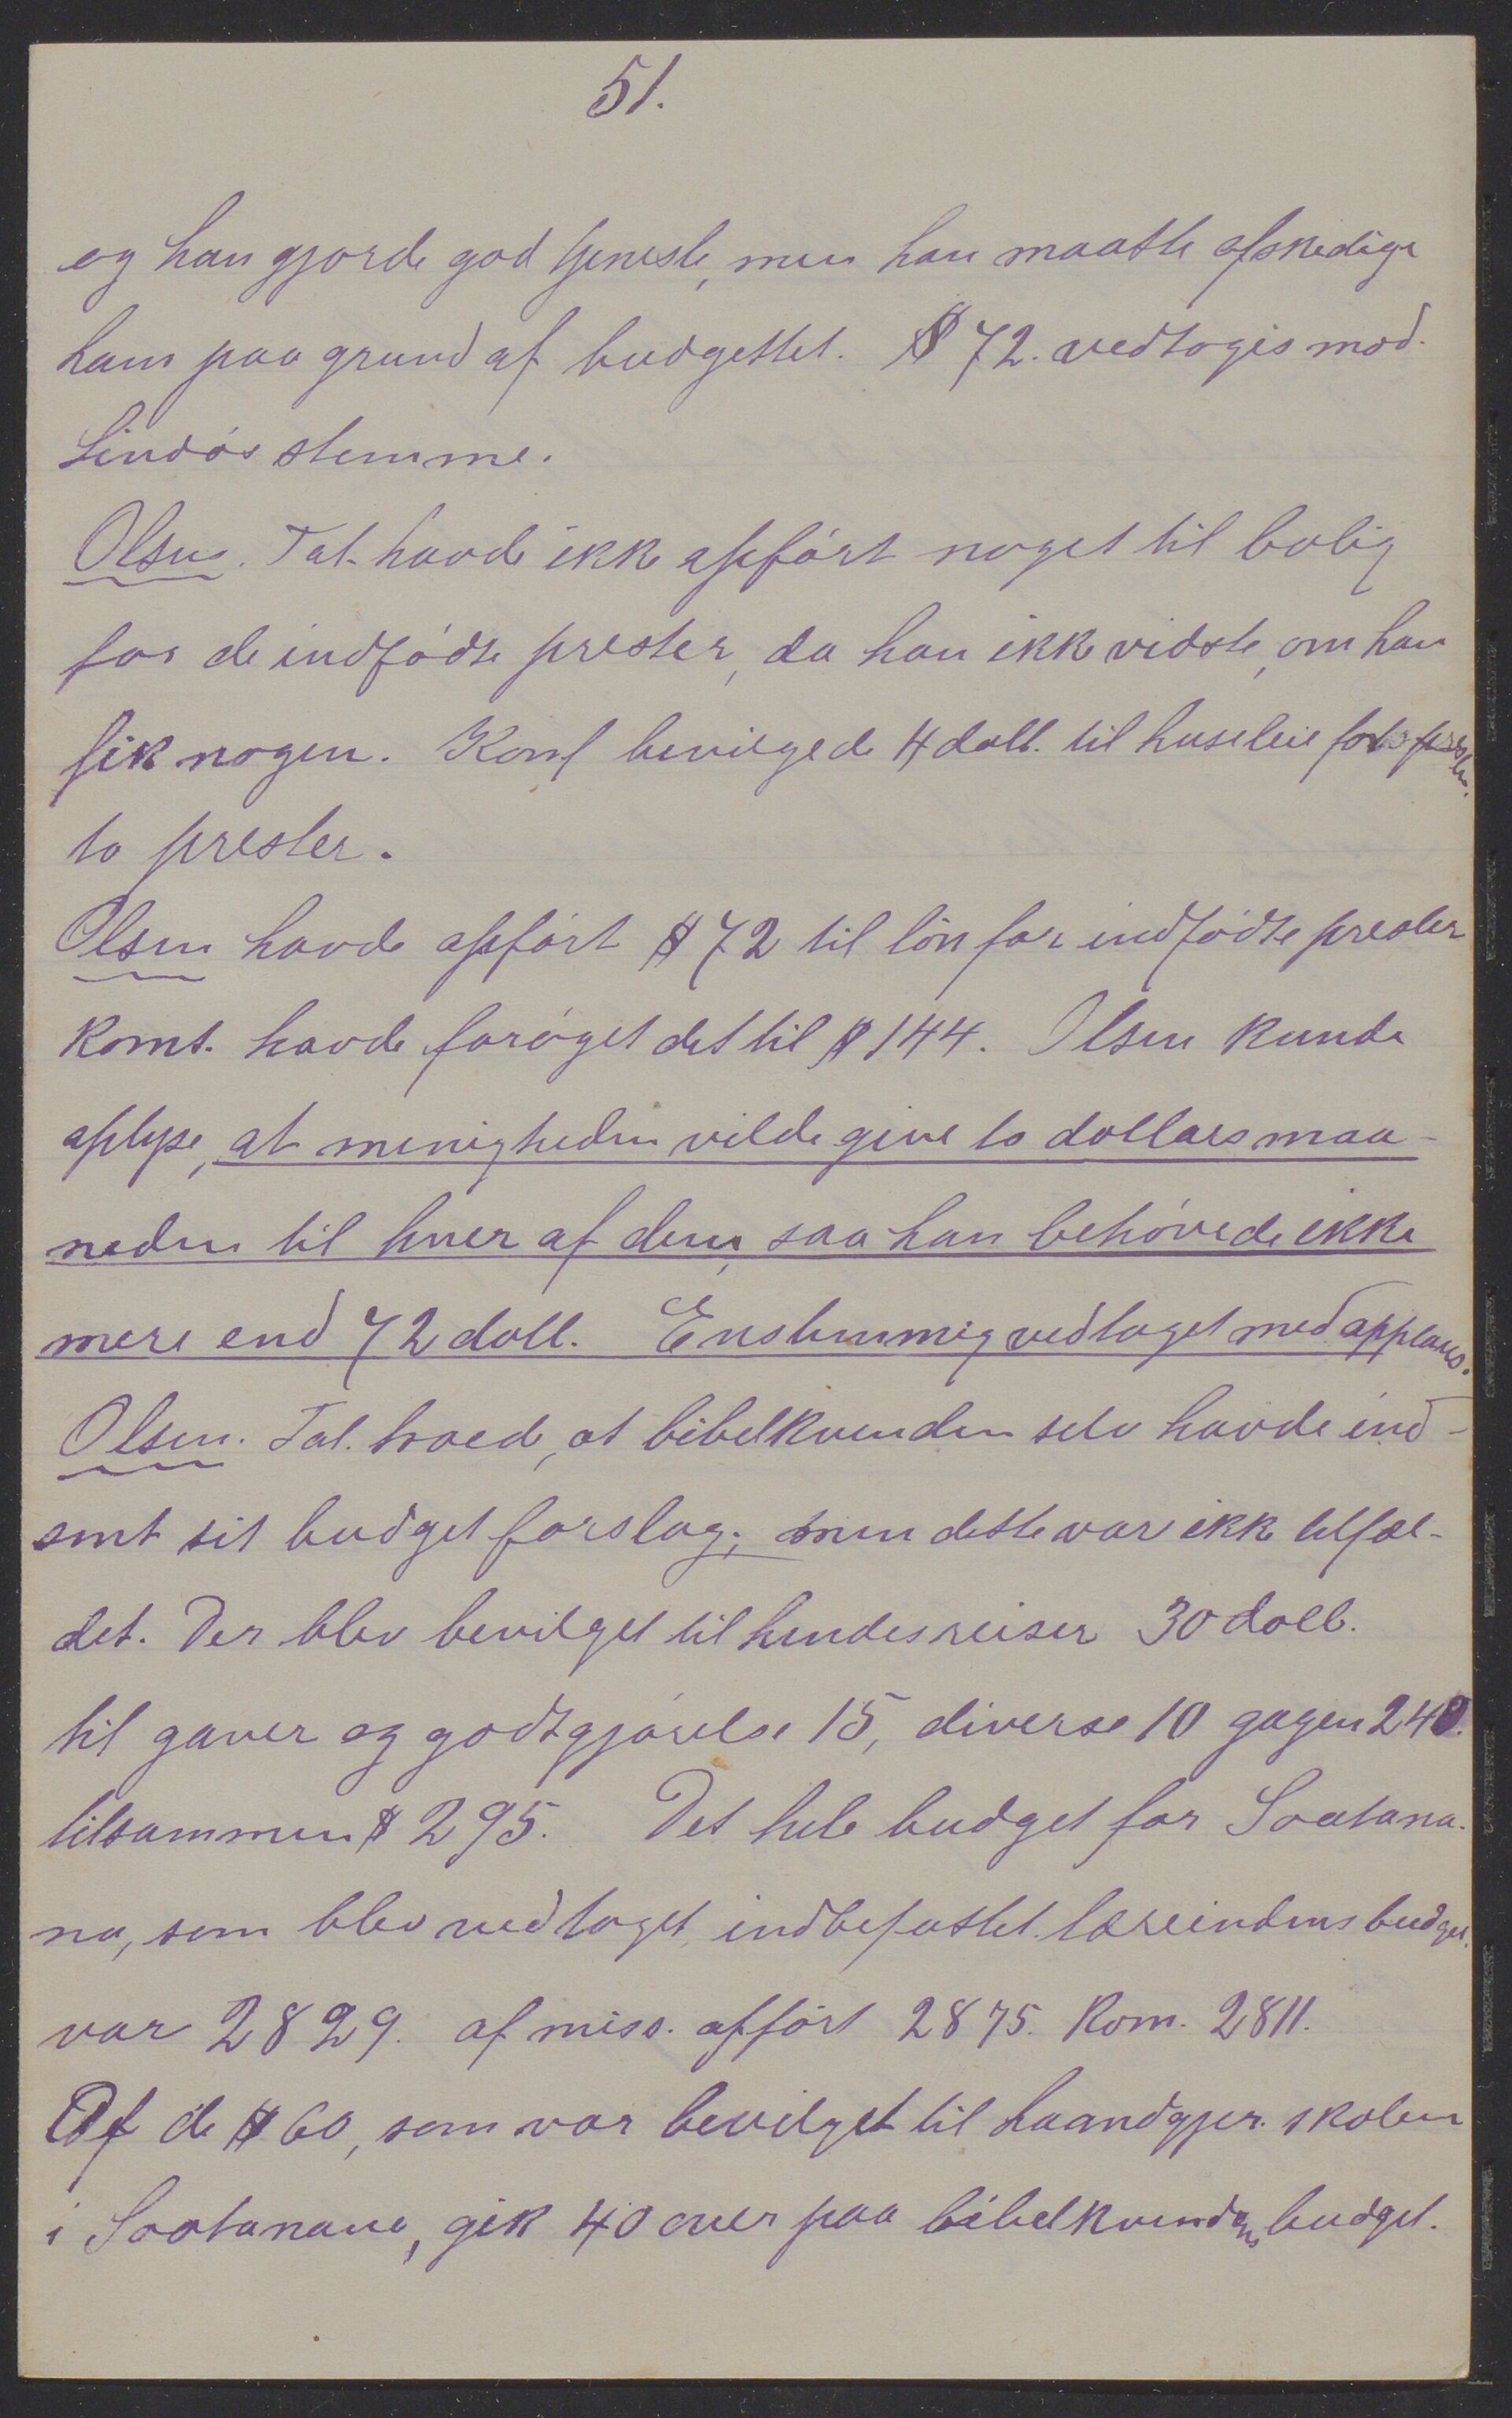 51.
og han gjorde god tjeneste, men han maatte afskedige
ham paa grund af budgettet. $ 72. vedtoges mod
Lindøs stemme.
Olsen. Tal. havde ikke opført noget til bolig
for de indfødte prester, da han ikke vidste, om han
fik nogen. Konf bevilgede 4 doll. til husleie for
to prester.
Olsen havde opført $ 72 til løn for indfødte prester
Komt. havde forøget det til $ 144. Olsen kunde
oplyse, at menigheden vilde give to dollars maa-
neden til hver af dem, saa han behøvede ikke
mere end 72 doll. Enstemmig vedtaget med applaus.
Olsen. Tal. troede, at bibelkvinden selv havde ind-
sent sit budgetforslag; men dette var ikke tilfæl-
det. Der blev bevilget til hendes reiser 30 doll.
til gaver og godtgjørelse 15, diverse 10 gagen 240.
tilsammen $ 295. Det hele budget for Soatana-
na, som blev vedtaget, indbefattet lærerindens budget.
var 2829. af miss. opført 2875. Kom. 2811.
Af de $ 60, som var bevilget til haandgjer. skolen
i Soatanana, gik 40 over paa bibelkvindens budget.